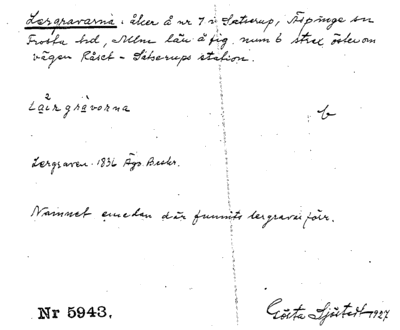 Lergravarna. åker å nr 7 i Sätserup,
Frosta hd, Mlm län å fig. num 6 strax öster om
vägen - Sätserups station.
b
Lergraven. 1836 Ägo Beskr.
Namnet emedan där funnits lergravar förr.
Nr 5943.
Gösta Sjöstedt 1927